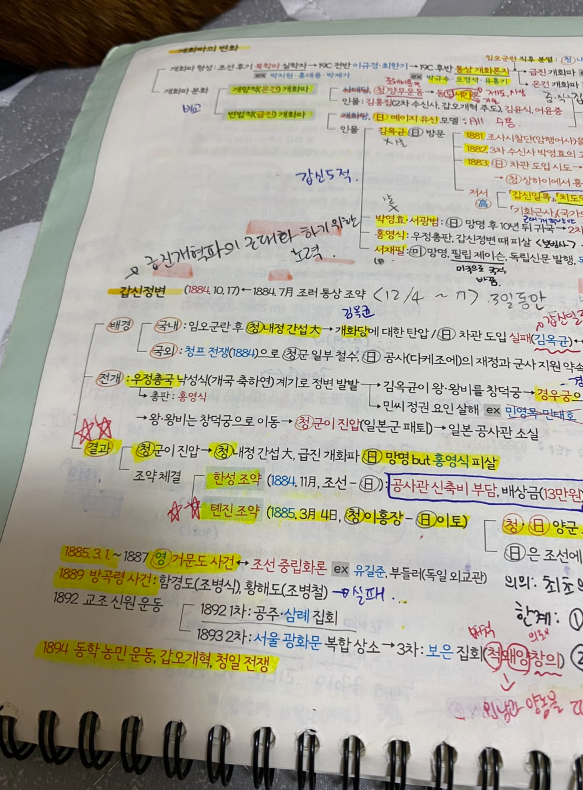 개화파의 변화
임오군란 직후 분열 : 청
개화파 형성 : 조선 후기 북학파 실학자→19C 전반 이규경·최한기→19C 후반 통상 개화론자
급진 개화파
ex 박지원·홍대용·박제가
ex 박규수·오경석·유홍기
온건 개화파
개화파 분화
개량적(온건) 개화파
청 양무운동
인물: 김홍집(2차 수신사, 갑오개혁 주도), 김윤식, 어윤중
비교
변법적(급진) 개화파
日 메이지 유신 모델 : 수용
인물
김옥균 日 방문
1881. 조사시찰단(암행어사)
1882. 3차 수신사 박영효의
1883. 日 차관 도입 시도→
→ 청 상하이에서
갑신5적.
저서
「갑신일록」,「치도
「기화근사」
박영효·서광범: 日 망명 후 10년 뒤 귀국→2차
홍영식: 우정총판, 갑신정변 때 피살
서재필: 미 망명, 필립 제이슨, 독립신문 발행,
미국으로 국적 바꿈.
급진개혁파의 근대화 하기 위한
노력.
갑신정변 (1884. 10. 17)←1884. 7월 조러 통상 조약 <12/4 ~ 7> 3일동안
김옥균
배경
국내 : 임오군란 후 청 내정 간섭 大→개화당에 대한 탄압 / 日 차관 도입 실패(김옥균)
국외 : 청프 전쟁(1884)으로 청군 일부 철수, 日 공사(다케조에)의 재정과 군사 지원 약속
전개 : 우정총국 낙성식(개국 축하연) 계기로 정변 발발
→김옥균이 왕·왕비를 창덕궁→경우궁으
총판 : 홍영식
→민씨 정권 요인 살해 ex 민영목·민태호
→왕·왕비는 창덕궁으로 이동→청군이 진압(일본군 패퇴)→일본 공사관 소실
결과
청군이 진압→청 내정 간섭 大, 급진 개화파 日 망명 but 홍영식 피살
조약 체결
한성 조약 (1884. 11월, 조선-日): 공사관 신축비 부담, 배상금(13만원)
톈진 조약 (1885. 3월 4일, 청 이홍장-日 이토)
청·日 양군
日은 조선에
1885. 3. 1.~1887 영 거문도 사건↔조선 중립화론 ex 유길준, 부들러(독일 외교관)
의의: 최초의
1889 방곡령 사건: 함경도(조병식), 황해도(조병철) →실패..
한계: ①
1892 교조 신원 운동
1892 1차: 공주·삼례 집회
1893 2차: 서울 광화문 복합 상소→3차: 보은 집회(척왜양창의)
②
1894 동학 농민 운동, 갑오개혁, 청일 전쟁